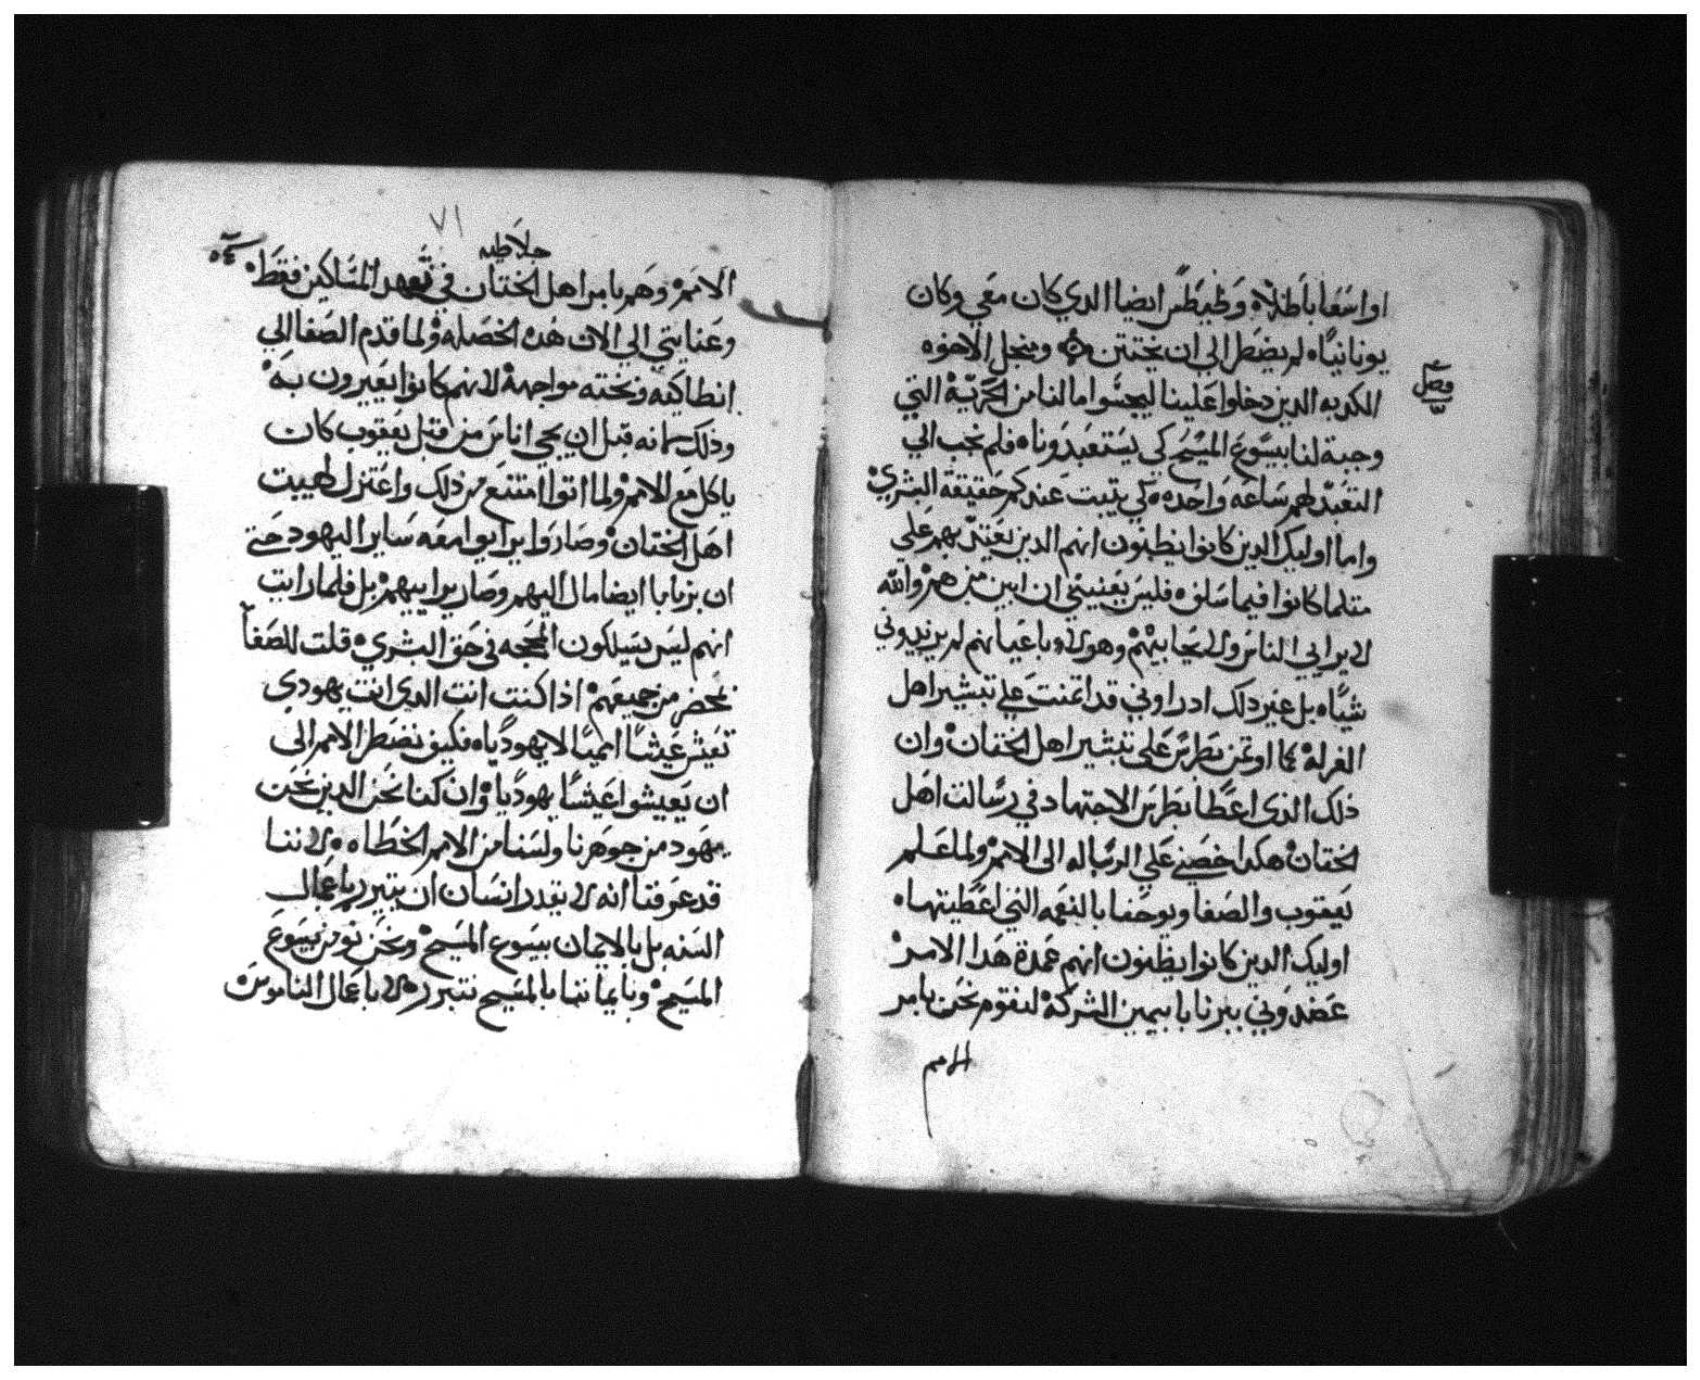 او اسعا باطلاه وطيطس ايضا الدي كان معي وكان
يونانيًا ه لم يضطر الي ان يختتن ه ومنجل الاخوه
فصل
الكدبه الدين دخلوا علينا ليجسوا ما لنا من الحرّية التي
وجبة لنا بيسوع المسيح كي يستعبدونا ه فلم نجب الي
التعبد لهم ساعه واحده ه كي يتبت عندكم حقيقة البشري
واما اوليك الدين كانوا يظنون انهم الدين يعتد بهم علي
متلما كانوا فيما سلف ه فليس يعنيني ان ابين من هم والله
لا يرايي الناس ولا يحابيهم وهولاء باعيانهم لم يزيدوني
شياه بل غير دلك اد راوني قد اتمنت علي تبشير اهل
الغرله كما اوتمن بطرس علي تبشير اهل الختان وان
ذلك الذي اعطا بطرس الاجتهاد في رسالت اهل
الختان هكدا خصني علي الرساله الى الامم ولما علم
يعقوب والصفا ويوحنا بالنعمه التي اعطيتها ه
اوليك الدين كانوا يظنون انهم عمدة هدا الامر
عضدوني ببرنابا بيمين الشركة لنقوم نحن بامر
الامم
٧١
جلاطيه
الامم وهم بامر اهل الختان في تعهد المساكين فقط
وعنايتي الي الان هده الخصله ولما قدم الصفا الي
انطاكيه وبخته مواجهة لانهم كانوا يعيرون به
وذلك انه قبل ان يجي اناس من قبل يعقوب كان
ياكل مع الامم ولما اتوا امتنع من دلك واعتزل لهيبت
اهل الختان وصاروا يرايوا معه ساير اليهود حتى
ان برنابا ايضا مال اليهم وصار يراييهم بل فلما رايت
انهم ليس يسلكون المحجه في حق البشري قلت للصفا
بمحضر من جميعهم اذا كنت انت الدي انت يهودي
تعيش عيشًا امميًا لا يهوديًا ه فكيف تضطر الامم الى
ان يعيشوا عيشًا يهوديًا وان كنا نحن الدين نحن
يهود من جوهرنا ولسنا من الامم الخطاه ه لاننا
قد عرفنا انه لا يقدر انسان ان يتبرر باعمال
السنه بل بالايمان بيسوع المسيح ونحن نومن بيسوع
المسيح وبايماننا بالمسيح نتبرر ه لا باعمال الناموس